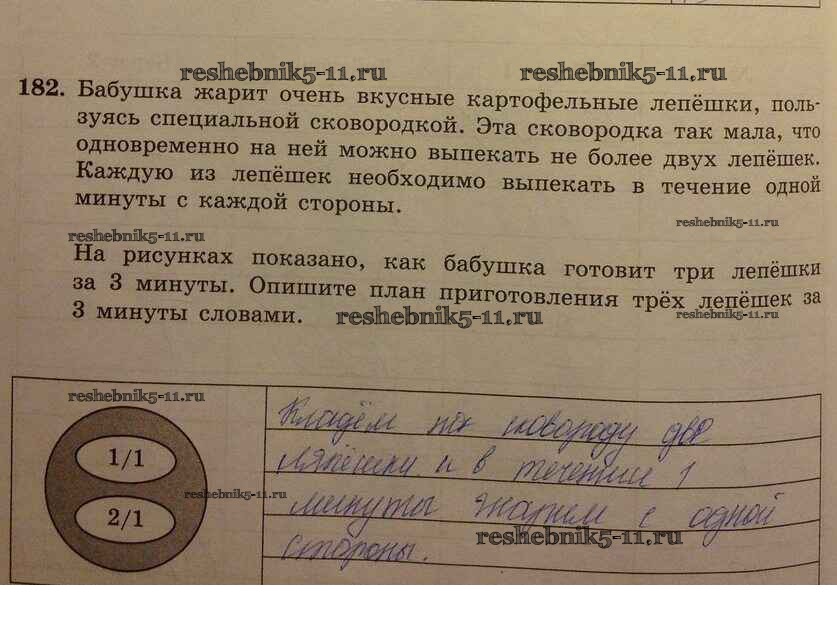 reshebnik5-11.ru reshebnik5-11.ru
182. Бабушка жарит очень вкусные картофельные лепёшки, поль-
зуясь специальной сковородкой. Эта сковородка так мала, что
одновременно на ней можно выпекать не более двух лепёшек.
Каждую из лепёшек необходимо выпекать в течение одной
минуты с каждой стороны.
reshebnik5-11.ru
reshebnik5-11.ru
На рисунках показано, как бабушка готовит три лепёшки
за 3 минуты. Опишите план приготовления трёх лепёшек за
3 минуты словами.
reshebnik5-11.ru
reshebnik5-11.ru
reshebnik5-11.ru
1/1
2/1
reshebnik5-11.ru
Кладём на сковороду две
ляпёшки и в течении 1
минуты жарим с одной
стороны.
reshebnik5-11.ru